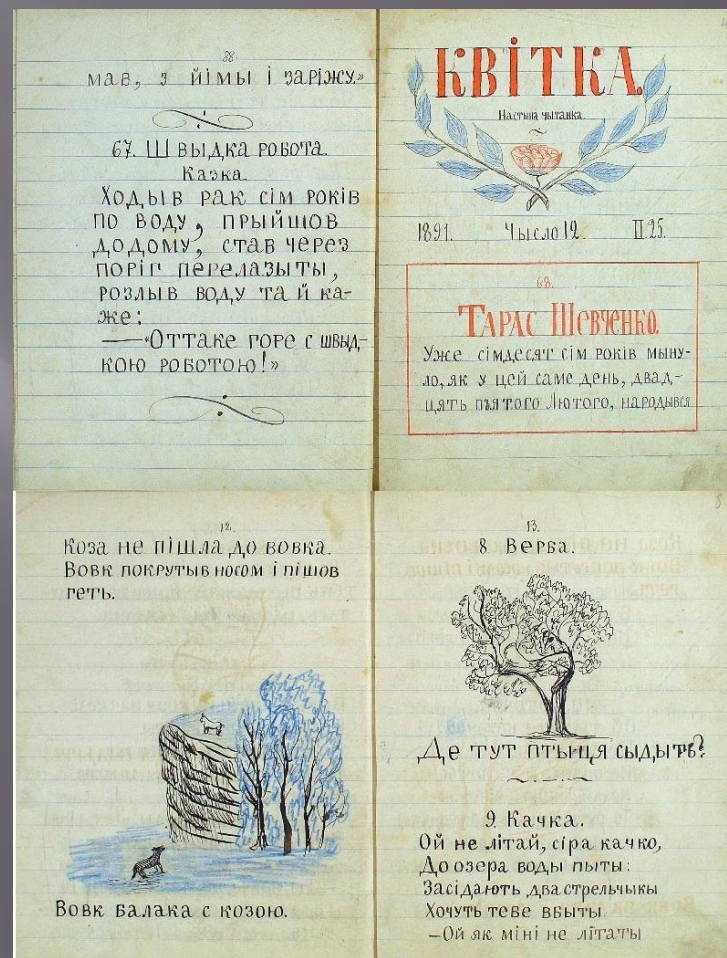 38.
мав, з йімы і заріжу.»
67. Швыдка робота.
Казка.
Ходыв рак сім років
по воду, прыйшов
додому, став через
поріг перелазыты,
розлыв воду та й ка-
же:
—«Оттаке горе с швыд-
кою роботою!»
КВІТКА.
Настина чытанка.
1891. Чысло 12. II.25.
68.
Тарас Шевченко.
Уже сімдесят сім років мыну-
ло, як у цей саме день, двад-
цять пъятого Лютого, народывся
12.
Коза не пішла до вовка.
Вовк покрутыв носом і пішов
геть.
Вовк балака с козою.
13.
8. Верба.
Де тут птыця сыдыть?
9. Качка.
Ой не літай, сіра качко,
До озера воды пыты:
Засідають два стрельчыкы
Хочуть тебе вбыты
—Ой як міні не літаты